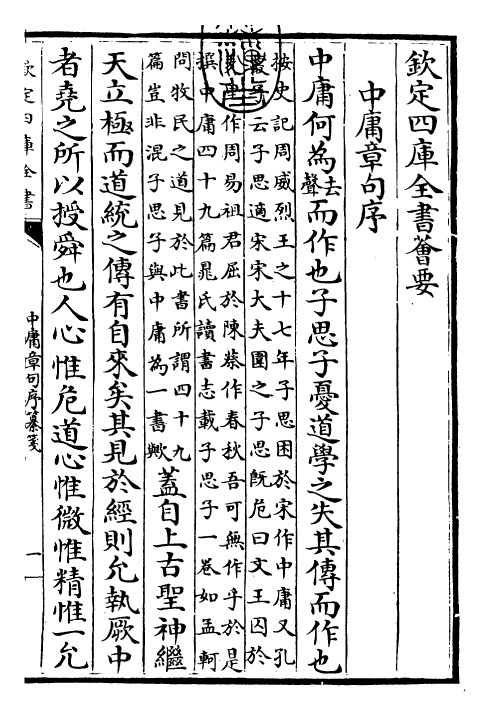 欽定四庫全書薈要
中庸章句序
中庸何為去聲而作也子思子憂道學之失其傳而作也
按史記周威烈王之十七年子思困於宋作中庸又孔
叢子云子思適宋宋大夫圍之子思既危曰文王囚於
作周易祖君屈於陳蔡作春秋吾可無作乎於是
撰中庸四十九篇晁氏讀書志載子思子一卷如孟軻
問牧民之道見於此書所謂四十九
篇豈非混子思子與中庸為一書歟
蓋自上古聖神繼
天立極而道統之傳有自來矣其見於經則允執厥中
者堯之所以授舜也人心惟危道心惟微惟精惟一允
欽定四庫全書
中庸章句序纂箋
一